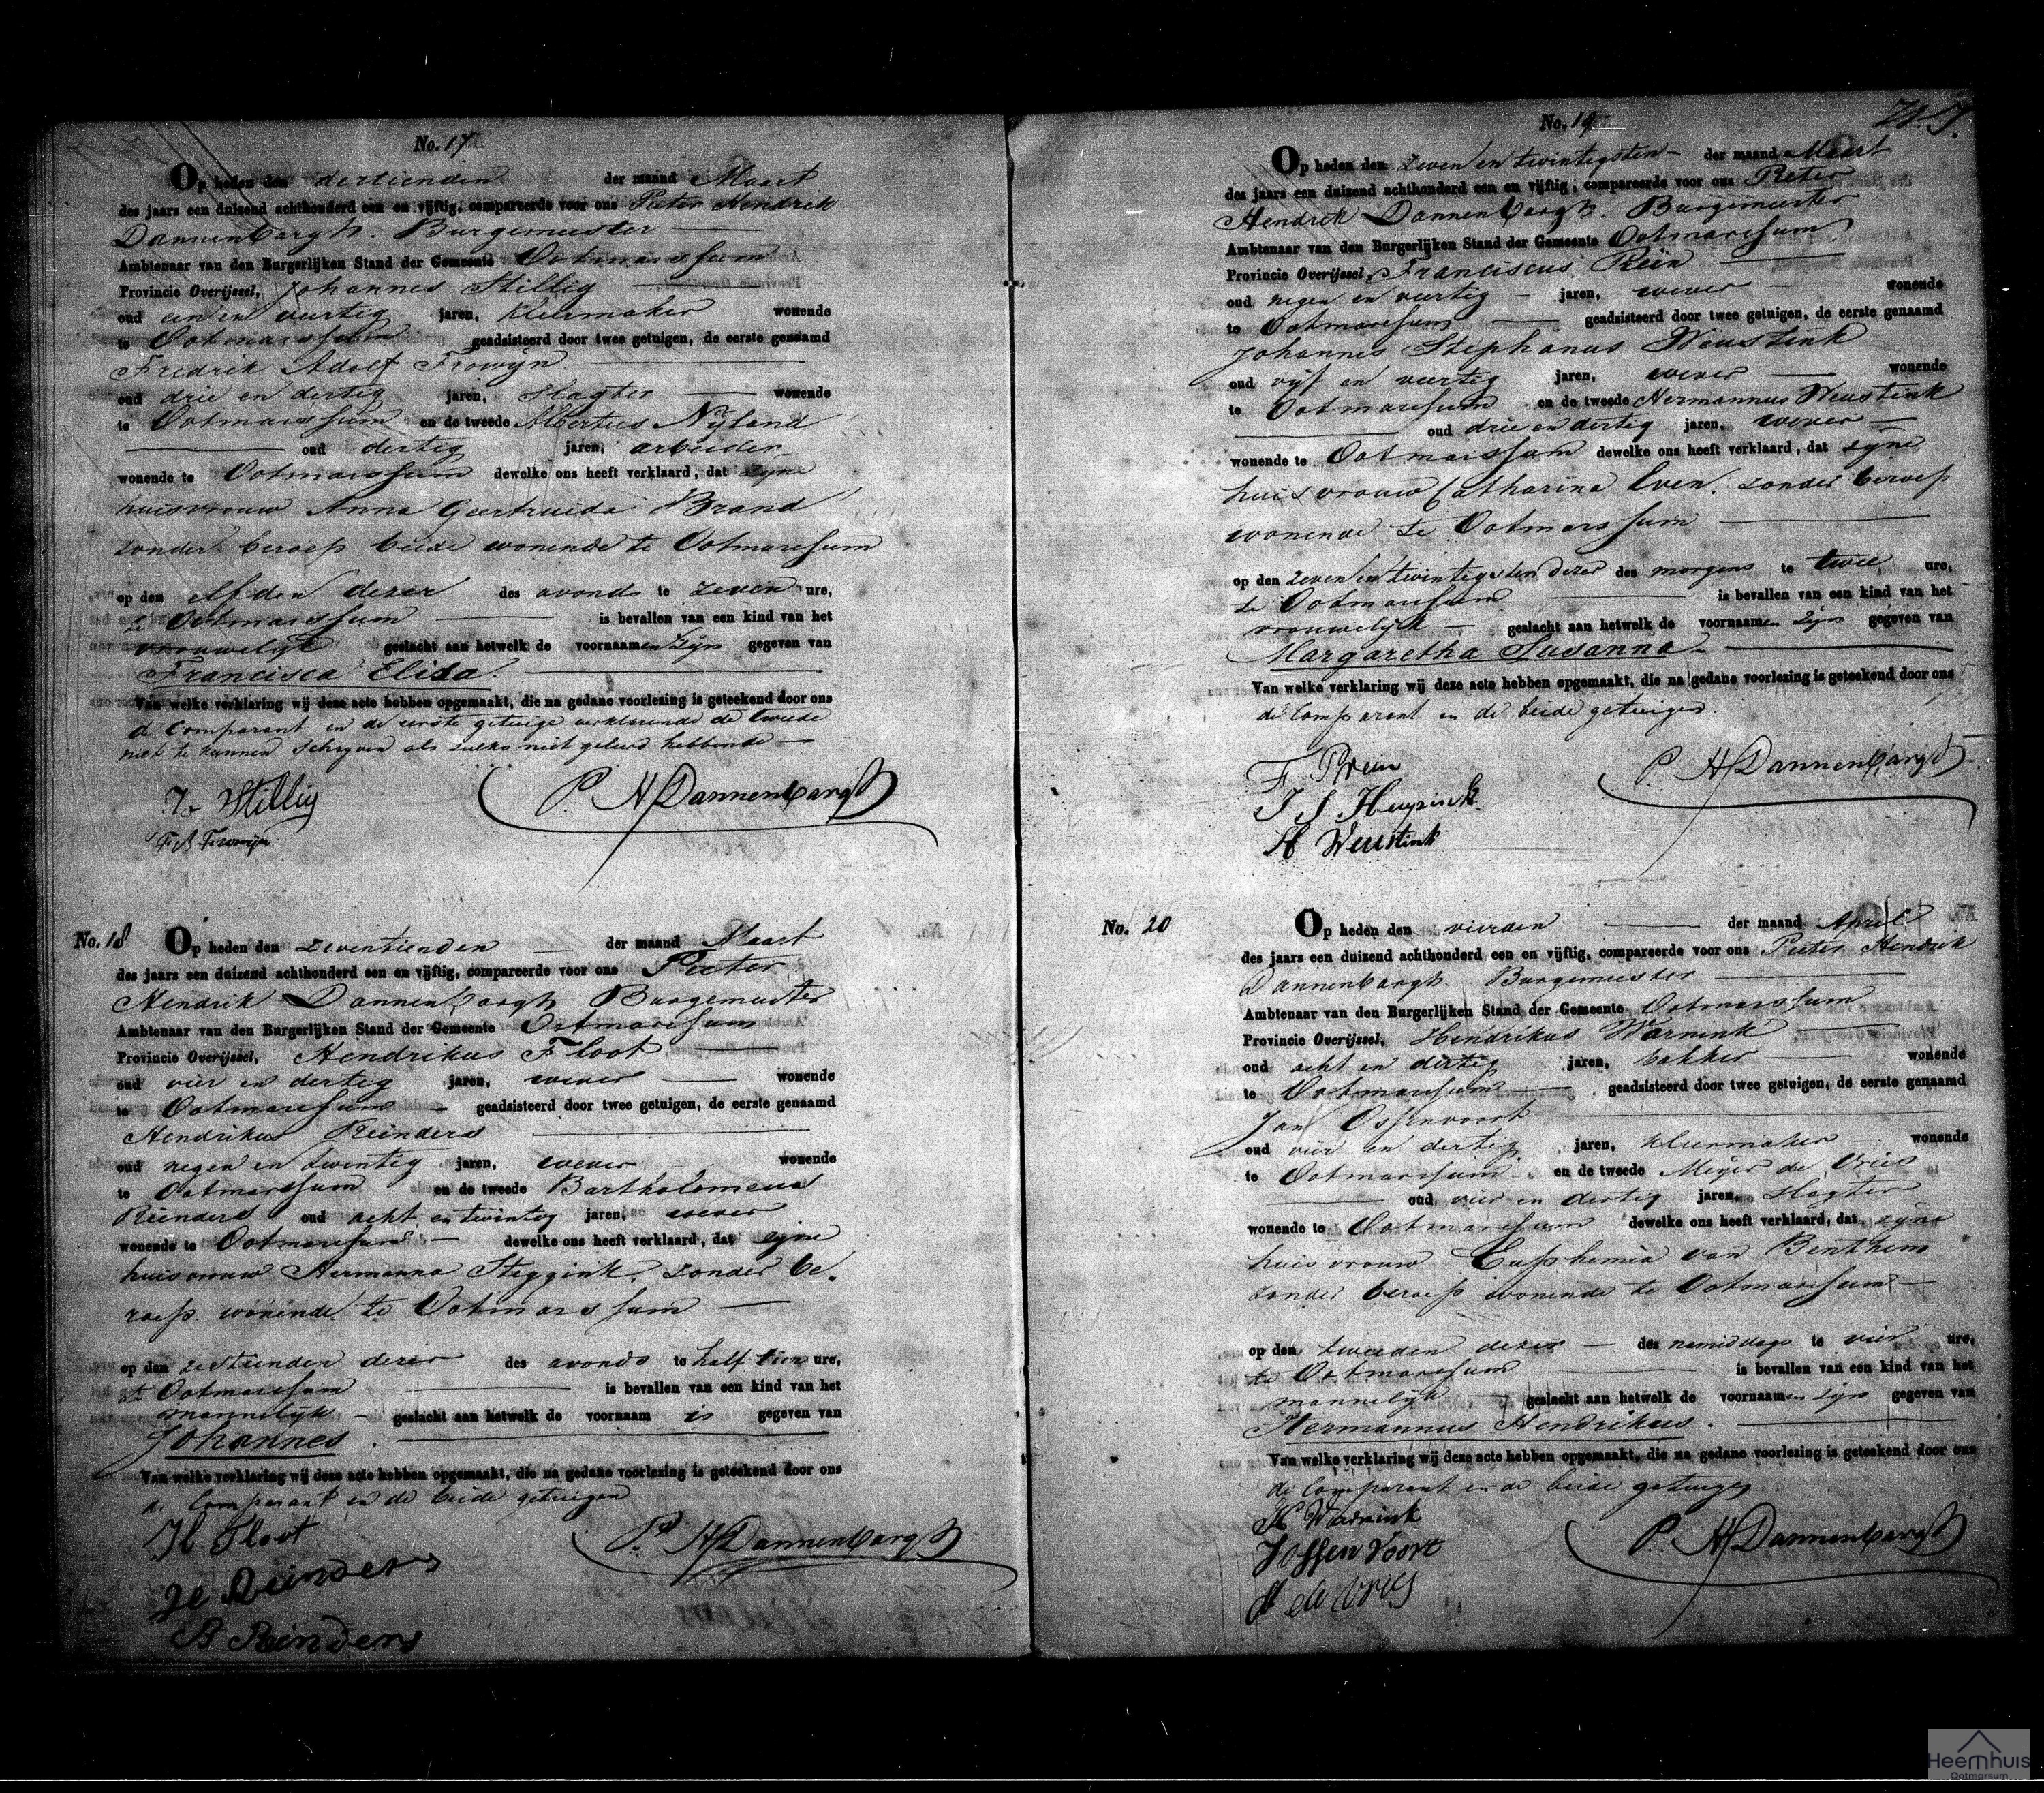 No. 17
Op heden den dertienden der maand Maart
des jaars een duizend achthonderd een en vijftig, compareerde voor ons Pieter Hendrik
Dannenbargh. Burgemeester
Ambtenaar van den Burgerlijken Stand der Gemeente Ootmarssum
Provincie Overijssel, Johannes Stillig
oud een en veertig jaren, Kleermaker wonende
te Ootmarssum geadsisteerd door twee getuigen, de eerste genaamd
Fredrik Adolf Frowijn
oud drie en dertig jaren, Slagter wonende
te Ootmarssum en de tweede Albertus Nijland
oud dertig jaren, arbeider
wonende te Ootmarssum dewelke ons heeft verklaard, dat zijne
huisvrouw Anna Geertruida Brand
zonder beroep beide wonende te Ootmarssum
op den elfden dezer des avonds te zeven ure,
te Ootmarssum is bevallen van een kind van het
vrouwelijk geslacht aan hetwelk de voornaamen zijn gegeven van
Francisca Eliza.
Van welke verklaring wij deze acte hebben opgemaakt, die na gedane voorlezing is geteekend door ons
de Comparant en de eerste getuige verklarende de tweede
niet te kunnen schrijven als zulks niet geleerd hebbende
Js Stillig
P. H Dannenbargh
F. A Frowijn
No. 18
Op heden den zeventienden der maand Maart
des jaars een duizend achthonderd een en vijftig, compareerde voor ons Pieter
Hendrik Dannenbargh Burgemeester
Ambtenaar van den Burgerlijken Stand der Gemeente Ootmarssum
Provincie Overijssel, Hendrikus Floot
oud vier en dertig jaren, wever wonende
te Ootmarssum geadsisteerd door twee getuigen, de eerste genaamd
Hendrikus Reinders
oud negen en twintig jaren, wever wonende
te Ootmarssum en de tweede Bartholomeus
Reinders oud acht en twintig jaren, wever
wonende te Ootmarssum dewelke ons heeft verklaard, dat zijne
huisvrouw Hermanna Steggink, zonder be-
roep wonende te Ootmarssum
op den zestienden dezer des avonds te half tien ure,
te Ootmarssum is bevallen van een kind van het
mannelijk geslacht aan hetwelk de voornaam is gegeven van
Johannes.
Van welke verklaring wij deze acte hebben opgemaakt, die na gedane voorlezing is geteekend door ons
de Comparant en de beide getuigen
H Floot
P. H Dannenbargh
H Reinders
B Reinders
No. 19
Op heden den zeven en twintigsten der maand Maart
des jaars een duizend achthonderd een en vijftig, compareerde voor ons Pieter
Hendrik Dannenbargh. Burgemeester
Ambtenaar van den Burgerlijken Stand der Gemeente Ootmarssum
Provincie Overijssel, Franciscus Rein
oud negen en veertig jaren, wever wonende
te Ootmarssum geadsisteerd door twee getuigen, de eerste genaamd
Johannes Stephanus Weustink
oud vijf en veertig jaren, wever wonende
te Ootmarssum en de tweede Hermannus Weustink
oud drie en dertig jaren, wever
wonende te Ootmarssum dewelke ons heeft verklaard, dat zijne
huisvrouw Catharina Even, zonder beroep
wonende te Ootmarssum
op den zeven en twintigsten dezer des morgens te twee ure,
te Ootmarssum is bevallen van een kind van het
vrouwelijk geslacht aan hetwelk de voornaamen zijn gegeven van
Margaretha Susanna
Van welke verklaring wij deze acte hebben opgemaakt, die na gedane voorlezing is geteekend door ons
de Comparant en de beide getuigen.
P. H Dannenbargh
H Weustink
No. 20
Op heden den vierden der maand April
des jaars een duizend achthonderd een en vijftig, compareerde voor ons Pieter Hendrik
Dannenbargh Burgemeester
Ambtenaar van den Burgerlijken Stand der Gemeente Ootmarssum
Provincie Overijssel, Hendrikus Warnink
oud acht en dertig jaren, bakker wonende
te Ootmarssum geadsisteerd door twee getuigen, de eerste genaamd
Jan Ossenvoort
oud vier en dertig jaren, kleermaker wonende
te Ootmarssum en de tweede Meijer de Vries
oud vier en dertig jaren, Slagter
wonende te Ootmarssum dewelke ons heeft verklaard, dat zijne
huisvrouw Euphemia van Benthem
zonder beroep wonende te Ootmarssum
op den tweeden dezer des namiddags te vier ure,
te Ootmarssum is bevallen van een kind van het
mannelijk geslacht aan hetwelk de voornaamen zijn gegeven van
Hermannus Hendrikus.
Van welke verklaring wij deze acte hebben opgemaakt, die na gedane voorlezing is geteekend door ons
de Comparant en de beide getuigen
H Warnink
P. H Dannenbargh
J Ossenvoort
M de Vries
Heemhuis
Ootmarsum